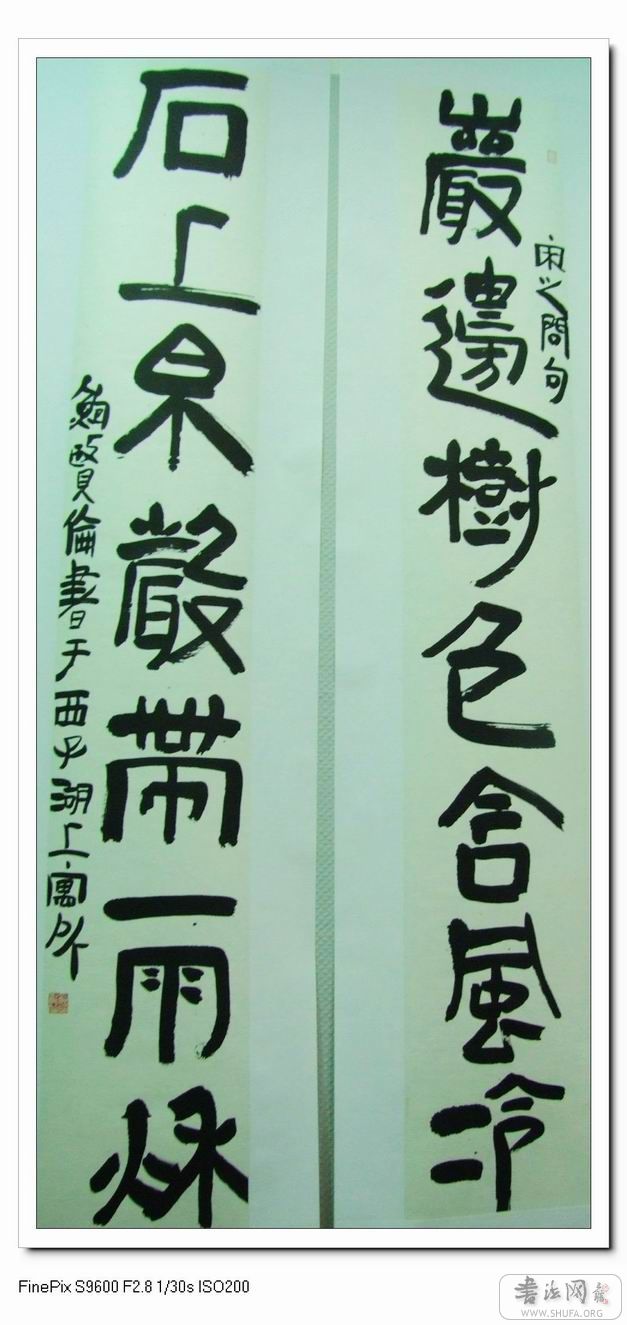 巖邊樹色含風冷
宋之問句
石上泉聲帶雨秌
鮑賢倫書于西子湖上寓所
FinePix S9600 F2.8 1/30s ISO200
書法网
WWW.SHUFA.ORG